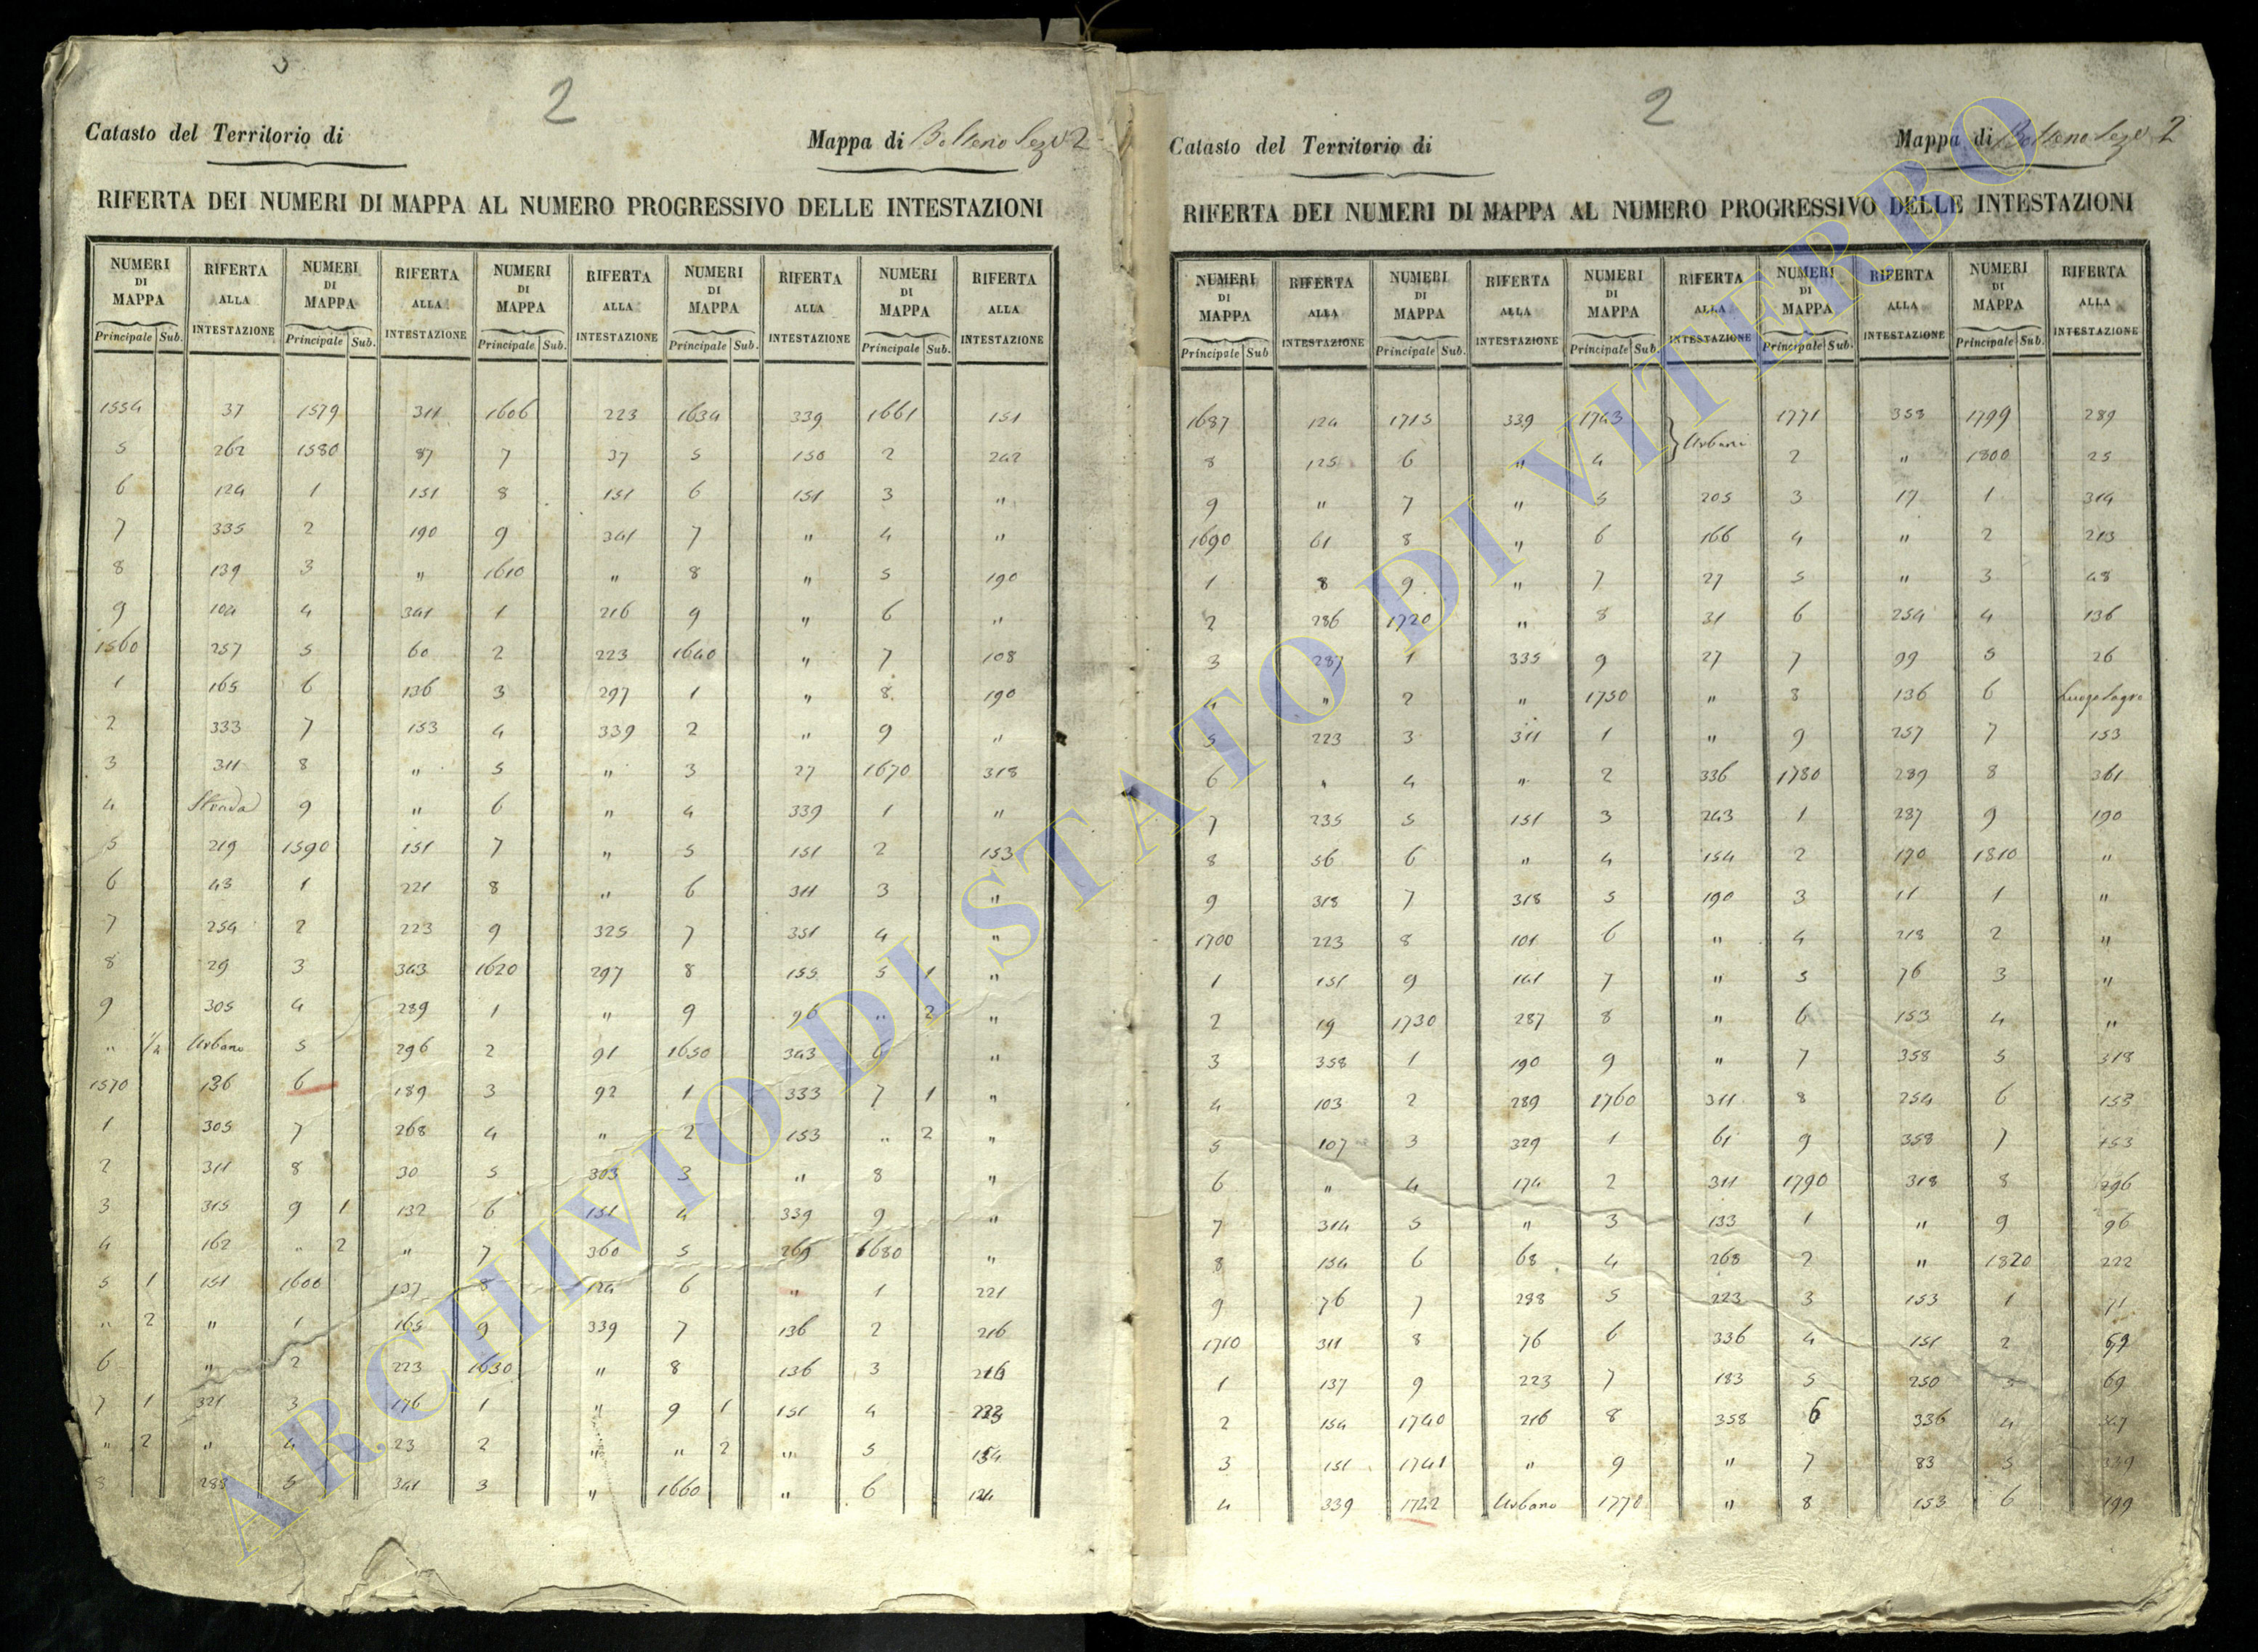 2
Catasto del Territorio di
Mappa di Bolseno Sez. 2
RIFERTA DEI NUMERI DI MAPPA AL NUMERO PROGRESSIVO DELLE INTESTAZIONI
NUMERI DI MAPPA RIFERTA ALLA INTESTAZIONE NUMERI DI MAPPA RIFERTA ALLA INTESTAZIONE NUMERI DI MAPPA RIFERTA ALLA INTESTAZIONE NUMERI DI MAPPA RIFERTA ALLA INTESTAZIONE NUMERI DI MAPPA RIFERTA ALLA INTESTAZIONE
Principale Sub. Principale Sub. Principale Sub. Principale Sub. Principale Sub.
1554 37 1579 311 1606 223 1634 339 1661 151
5 262 1580 87 7 37 5 150 2 242
6 124 1 151 8 151 6 151 3 "
7 335 2 190 9 341 7 " 4 "
8 139 3 " 1610 " 8 " 5 190
9 104 4 341 1 216 9 " 6 "
1560 257 5 60 2 223 1640 " 7 108
1 165 6 136 3 297 1 " 8 190
2 333 7 153 4 339 2 " 9 "
3 311 8 " 5 " 3 27 1670 318
4 Strada 9 " 6 " 4 339 1 "
5 219 1590 151 7 " 5 151 2 153
6 43 1 221 8 " 6 311 3 "
7 254 2 223 9 325 7 351 4 "
8 29 3 343 1620 297 8 155 5 1 "
9 305 4 289 1 " 9 96 " 2 "
" 1/2 Urbano 5 296 2 91 1650 343 6 "
1570 136 6 189 3 92 1 333 7 1 "
1 305 7 268 4 " 2 153 " 2 "
2 311 8 30 5 303 3 " 8 "
3 315 9 1 132 6 151 4 339 9 "
4 162 " 2 " 7 360 5 269 1680 "
5 1 151 1600 137 8 124 6 " 1 221
" 2 " 1 165 9 339 7 136 2 216
6 " 2 223 1630 " 8 136 3 216
7 1 321 3 176 1 " 9 1 151 4
" 2 " 4 23 2 " " 2 " 5 154
8 288 5 341 3 " 1660 " 6 124
2
Catasto del Territorio di
Mappa di Bolseno Sez. 2
RIFERTA DEI NUMERI DI MAPPA AL NUMERO PROGRESSIVO DELLE INTESTAZIONI
NUMERI DI MAPPA RIFERTA ALLA INTESTAZIONE NUMERI DI MAPPA RIFERTA ALLA INTESTAZIONE NUMERI DI MAPPA RIFERTA ALLA INTESTAZIONE NUMERI DI MAPPA RIFERTA ALLA INTESTAZIONE NUMERI DI MAPPA RIFERTA ALLA INTESTAZIONE
Principale Sub Principale Sub. Principale Sub. Principale Sub. Principale Sub.
1687 124 1715 339 1743 Urbani 1771 358 1799 289
8 125 6 " 4 2 " 1800 25
9 " 7 " 5 205 3 17 1 314
1690 61 8 " 6 166 4 " 2 213
1 8 9 " 7 27 5 " 3 48
2 286 1720 " 8 31 6 254 4 136
3 287 1 335 9 27 7 99 5 26
4 " 2 " 1750 " 8 136 6 Luogo Sagro
5 223 3 311 1 " 9 257 7 153
6 " 4 " 2 336 1780 289 8 361
7 235 5 151 3 243 1 287 9 190
8 56 6 " 4 154 2 170 1810 "
9 318 7 318 5 190 3 11 1 "
1700 223 8 101 6 " 4 218 2 "
1 151 9 141 7 " 5 76 3 "
2 19 1730 287 8 " 6 153 4 "
3 358 1 190 9 " 7 358 5 318
4 103 2 289 1760 311 8 254 6 153
5 107 3 329 1 61 9 358 7 153
6 " 4 174 2 311 1790 318 8 296
7 314 5 " 3 133 1 " 9 96
8 154 6 68 4 268 2 " 1820 222
9 76 7 288 5 223 3 153 1 71
1710 311 8 76 6 336 4 151 2 69
1 137 9 223 7 183 5 250 3 69
2 154 1740 216 8 358 6 336 4 347
3 151 1741 " 9 " 7 83 5 339
4 339 1742 Urbano 1770 " 8 153 6 199
ARCHIVIO DI STATO DI VITERBO